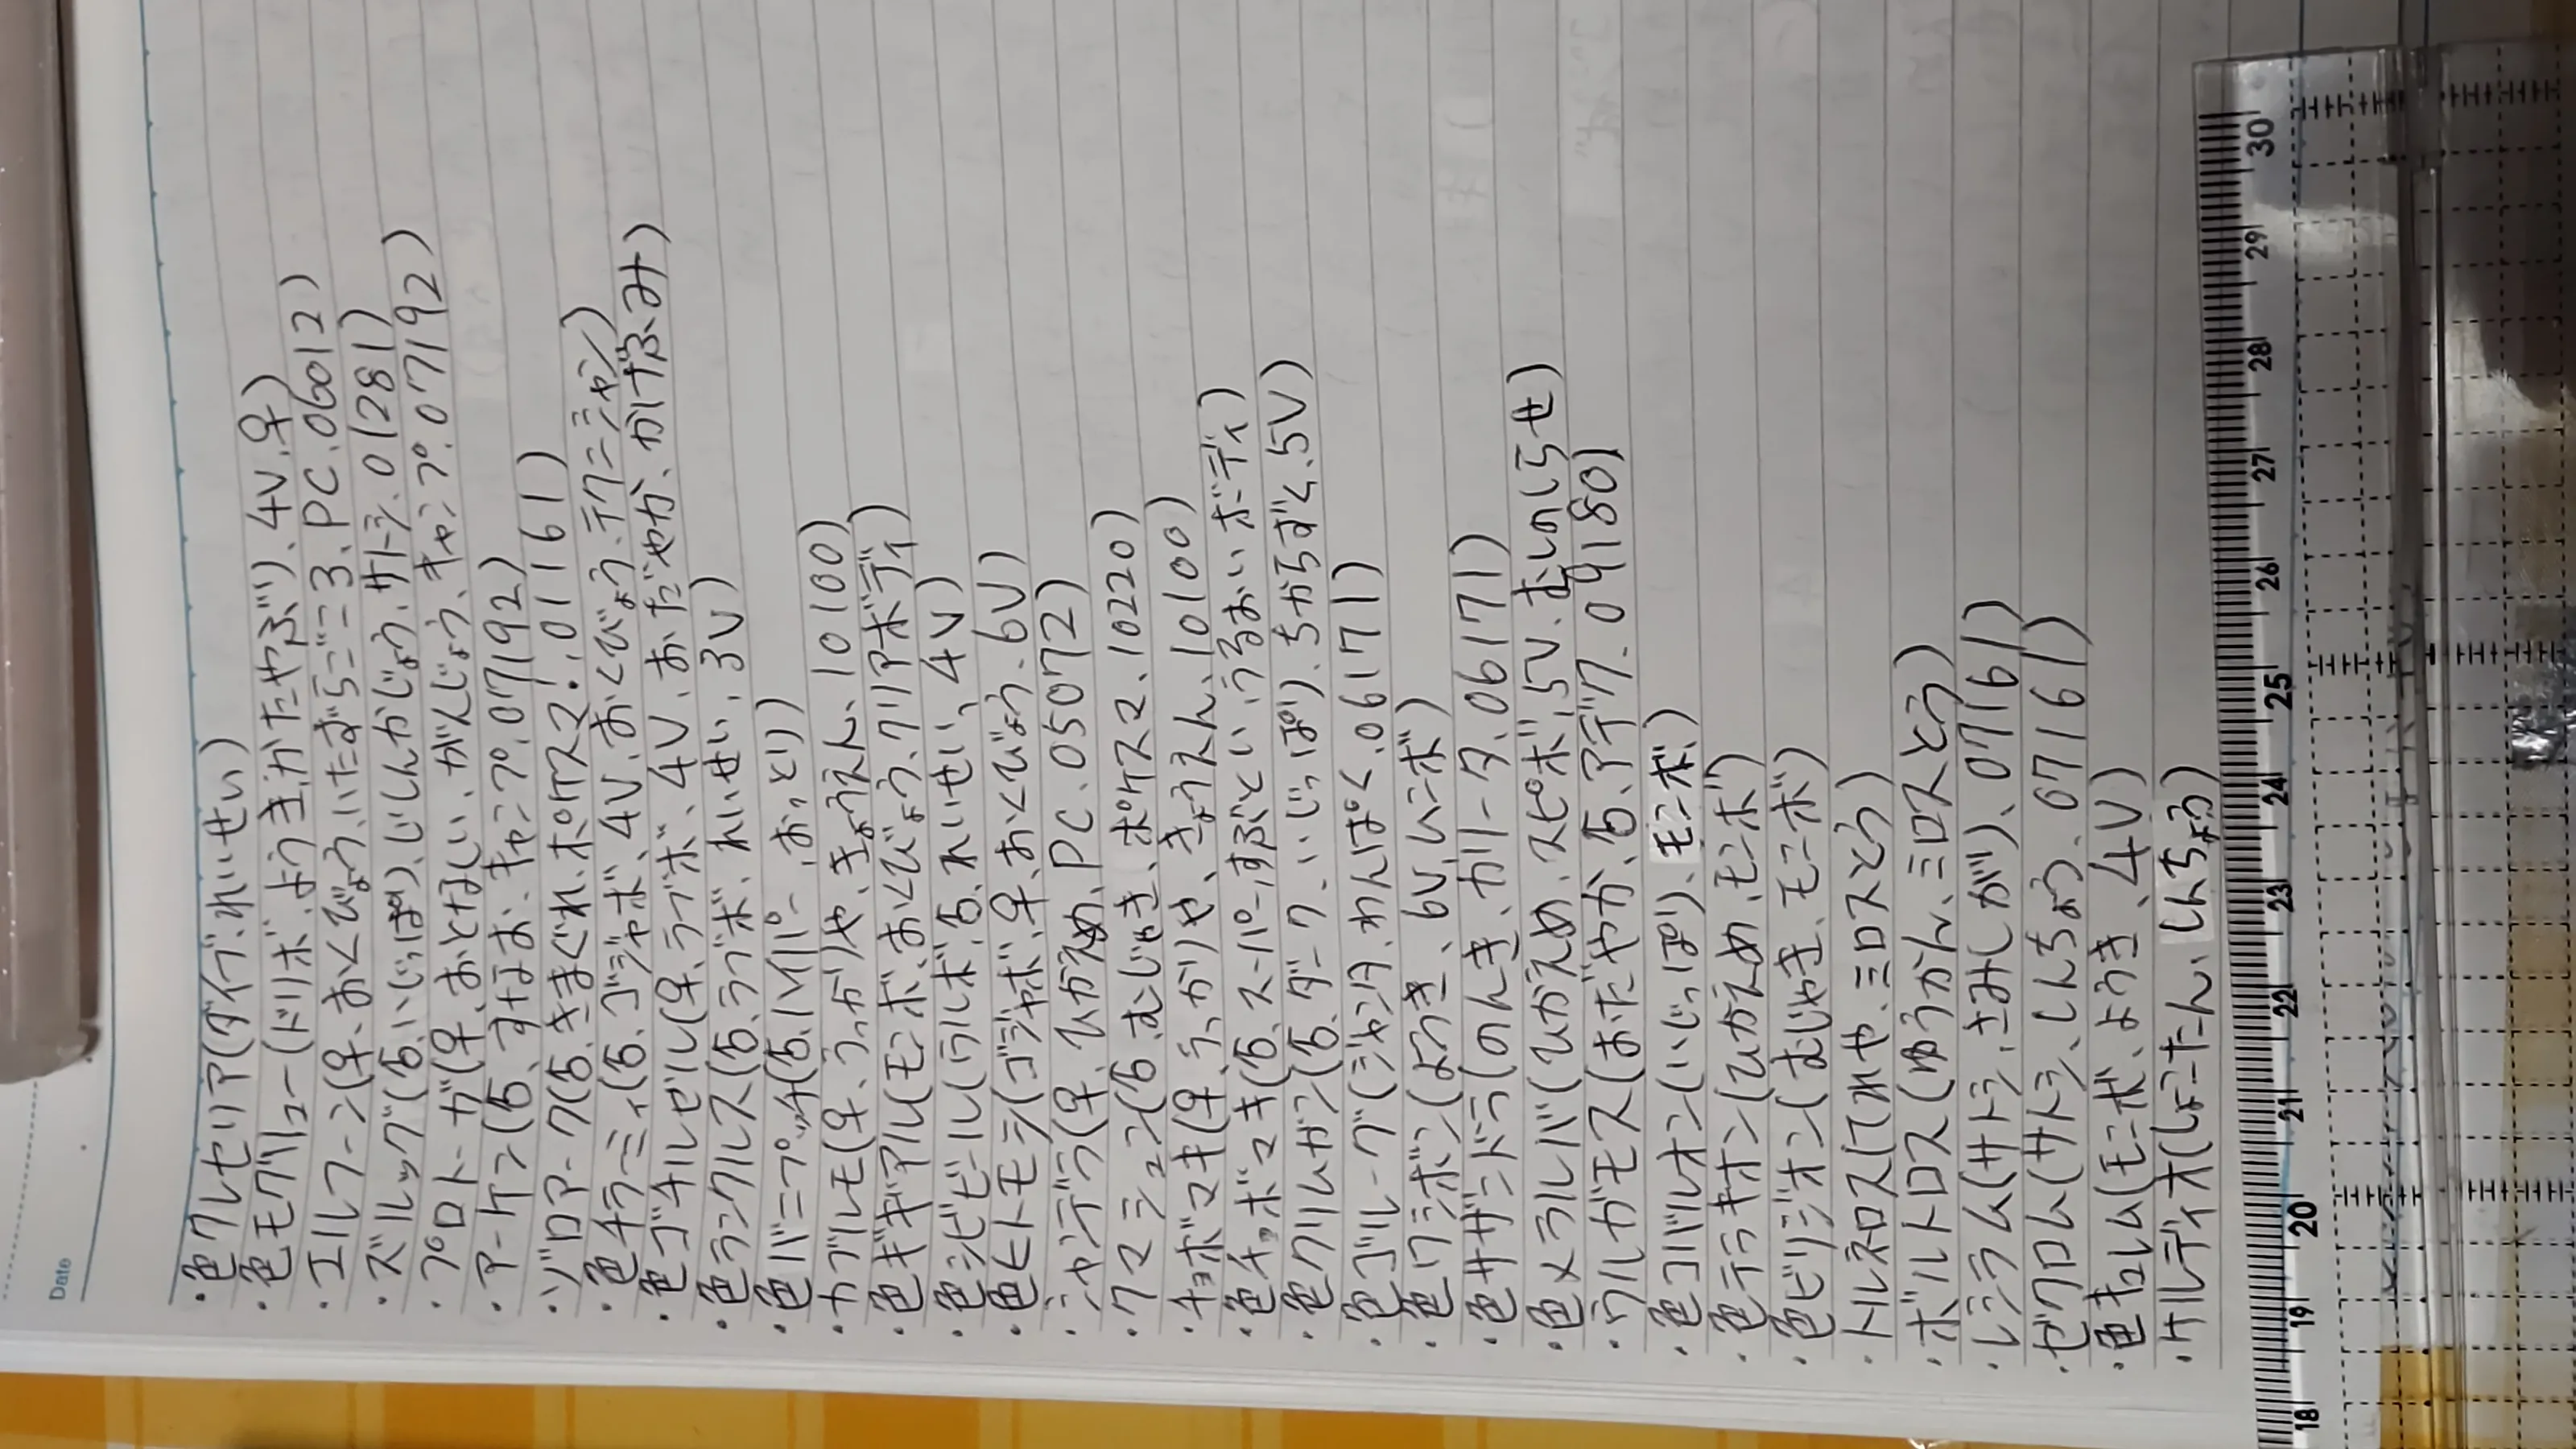 Date
・色クレセリア(ダイブ、れいせい)
・色モグリュー(ドリボ、ようき、かたやぶり、4V、♀)
・エルフーン(♀、おくびょう、いたずらごころ、PC、06012)
・ズルッグ(♂、いじっぱり、じしんかじょう、サトシ、01281)
・プロトーガ(♀、おとなしい、がんじょう、キャンプ、07192)
・アーケン(♂、すなお、キャンプ、07192)
・ゾロアーク(♂、きまぐれ、ポケスマ、01161)
・色チラーミィ(♂、ゴジャボ、4V、おくびょう、テクニシャン)
・色ゴチルゼル(♀、ラブボ、4V、おだやか、かげふみ)
・色ランクルス(♂、ラブボ、れいせい、3V)
・色バニプッチ(♂、ハイパー、おっとり)
・カブルモ(♀、うっかりや、きょうえん、10100)
・色ギギアル(モンボ、おくびょう、クリアボディ)
・色シビビール(ウルボ、♂、れいせい、4V)
・色ヒトモシ(ゴジャボ、♀、おくびょう、6V)
・シャンデラ(♀、ひかえめ、PC、05072)
・クマシュン(♂、むじゃき、ポケスマ、10220)
・チョボマキ(♀、うっかりや、きょうえん、10100)
・色チョボマキ(♂、スーパー、ずぶとい、うるおいボーディ)
・色クリムガン(♂、ダーク、いじっぱり、ちからずく、5V)
・色ゴルーグ(ジャンタ、わんぱく、06171)
・色ワシボン(ようき、6V、ムーボ)
・色サザンドラ(のんき、カリータ、06171)
・色メラルバ(ひかえめ、スピボ、5V、むしのしらせ)
・ウルガモス(おだやか、♂、アデク、09180)
・色コバルオン(いじっぱり、モンボ、)
・色テラキオン(ひかえめ、モンボ)
・色ビリジオン(むじゃき、モンボ)
・トルネロス(てれや、ミロスとう)
・ボルトロス(ゆうかん、ミロスとう)
・レシラム(サトシ、さみしがり、07161)
・ゼクロム(サトシ、しんちょう、07161)
・色キュレム(モンボ、ようき、4V)
・ケルディオ(しょーたん、しんちょう)
18 19 20 21 22 23 24 25 26 27 28 29 30